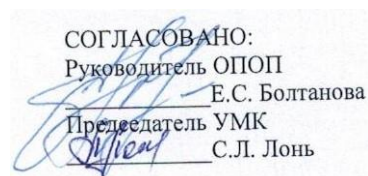 СОГЛАСОВАНО:
Руководитель ОПОП
Е.С. Болтанова
Председатель УМК
С.Л. Лонь